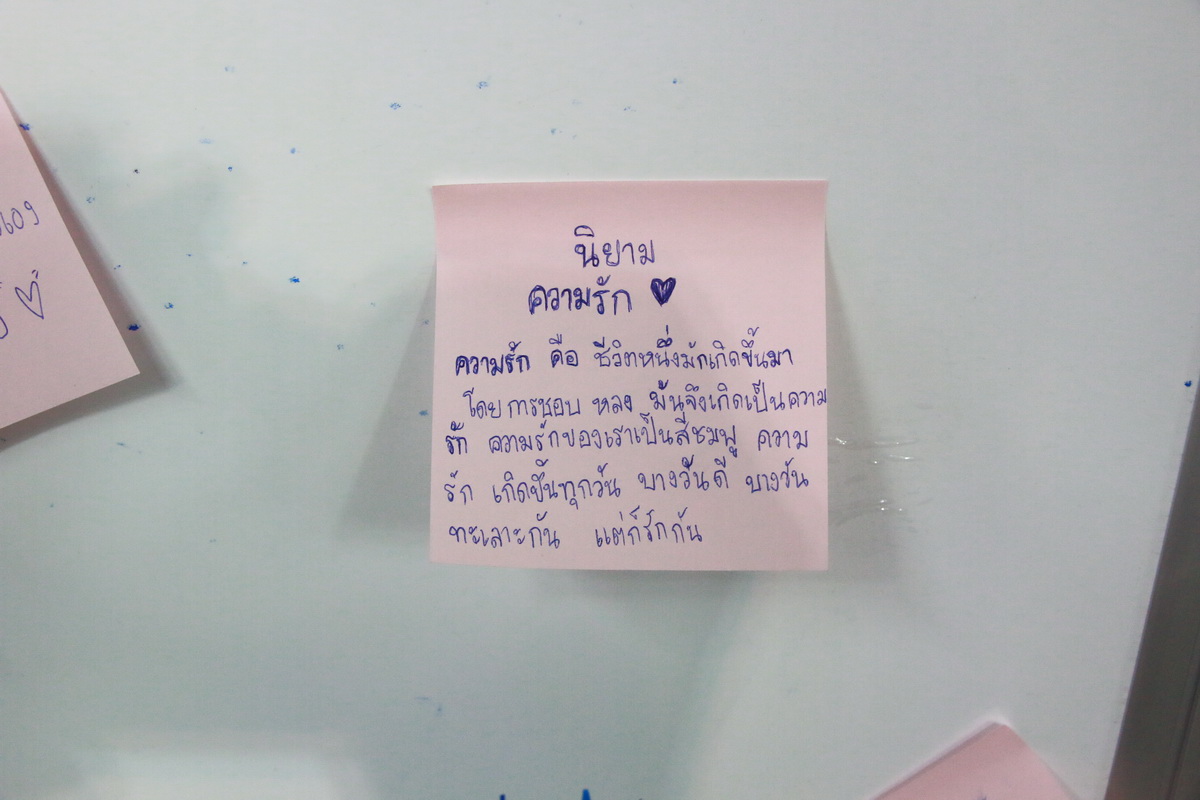 นิยาม
ความรัก
ความรัก คือ ชีวิตหนึ่งมักเกิดขึ้นมา
โดยการชอบ หลง มันจึงเกิดเป็นความ
รัก ความรักของเราเป็นสีชมพู ความ
รัก เกิดขึ้นทุกวัน บางวันดี บางวัน
ทะเลาะกัน แต่ก็รักกัน